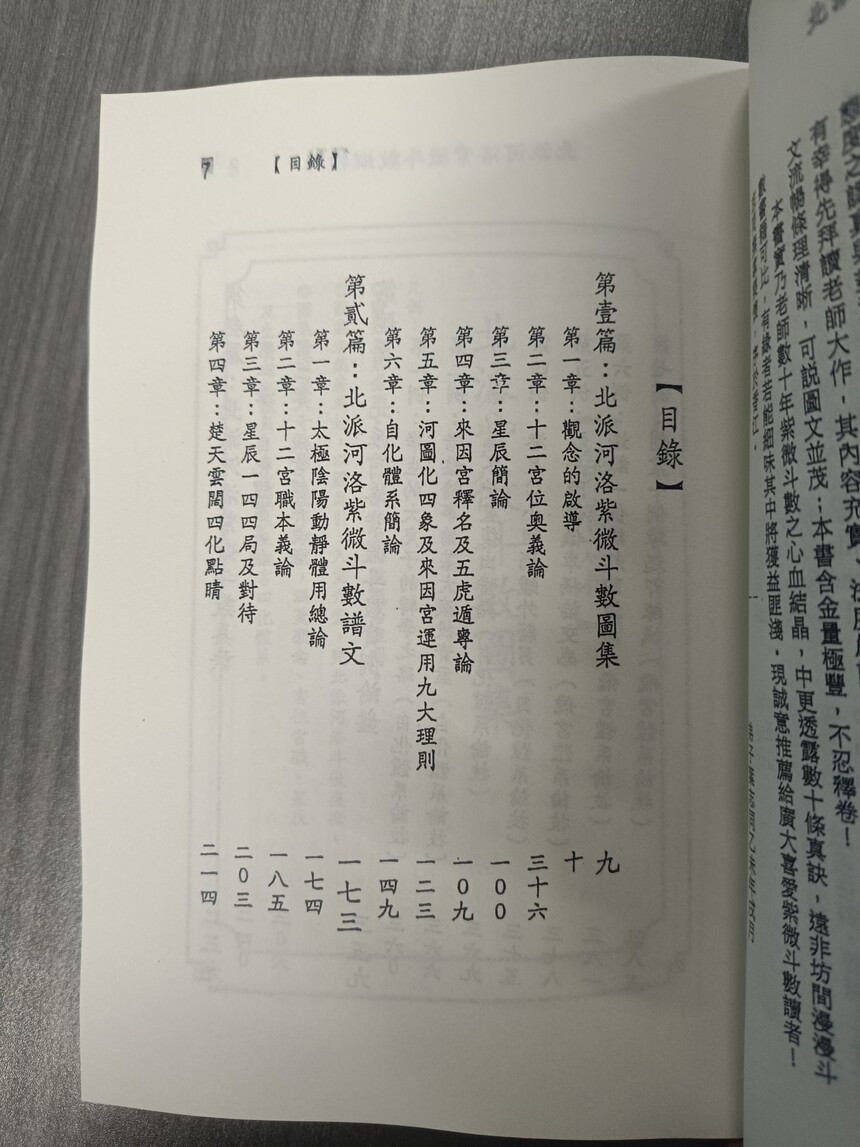 有幸得先拜讀老師大作，其內容充實、
不忍釋卷！
文流暢條理清晰，可說圖文並茂；本書含金量極豐，
本書實乃老師數十年紫微斗數之心血結晶，中更透露數十條真訣，遠非坊間漫漫斗
數書籍可比，有緣者若能細味其中將獲益匪淺，現誠意推薦給廣大喜愛紫微斗數讀者！
7
【目錄】
【目錄】
第壹篇：北派河洛紫微斗數圖集 九
第一章：觀念的啟導 十
第二章：十二宮位奧義論 三十六
第三章：星辰簡論 一００
第四章：來因宮釋名及五虎遁專論 一０九
第五章：河圖化四象及來因宮運用九大理則 一二三
第六章：自化體系簡論 一四九
第貳篇：北派河洛紫微斗數譜文 一七三
第一章：太極陰陽動靜體用總論 一七四
第二章：十二宮職本義論 一八五
第三章：星辰一四四局及對待 二０三
第四章：楚天雲闊四化點睛 二一四